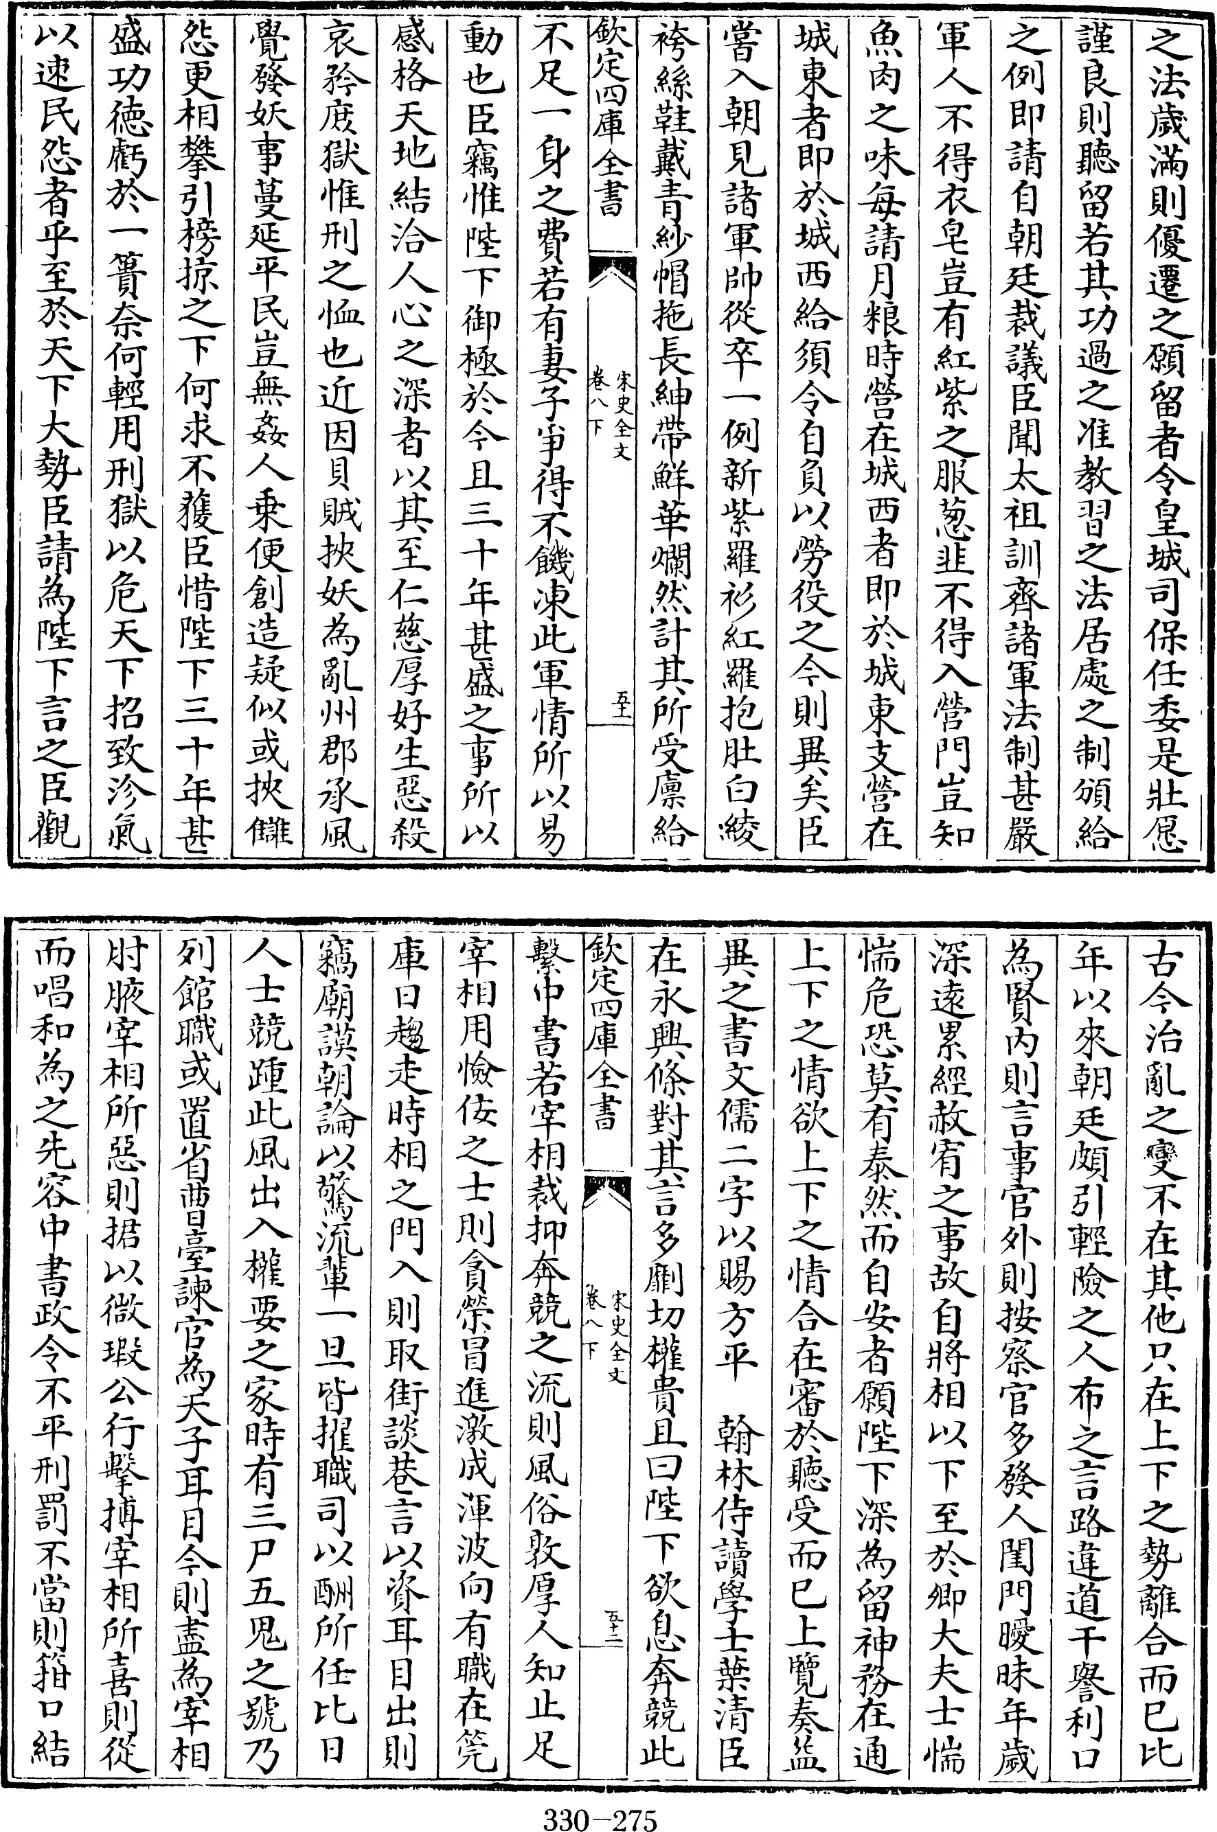 之法歲滿則優遷之願留者令皇城司保任委是壯愿
謹良則聽留若其功過之准教習之法居處之制頒給
之例即請自朝廷裁議臣聞太祖訓齊諸軍法制甚嚴
軍人不得衣皂豈有紅紫之服葱韭不得入營門豈知
魚肉之味每請月粮時營在城西者即於城東支營在
城東者即於城西給須令自負以勞役之今則異矣臣
嘗入朝見諸軍帥從卒一例新紫羅衫紅羅抱肚白綾
袴絲鞋戴青紗帽拖長紳帶鮮華爛然計其所受廪給
欽定四庫全書
宋史全文
卷八下
五十一
不足一身之費若有妻子爭得不饑凍此軍情所以易
動也臣竊惟陛下御極於今且三十年甚盛之事所以
感格天地結洽人心之深者以其至仁慈厚好生惡殺
哀矜庶獄惟刑之恤也近因貝賊挾妖為亂州郡承風
覺發妖事蔓延平民豈無姦人乗便創造疑似或挾讎
怨更相攀引榜掠之下何求不獲臣惜陛下三十年甚
盛功徳虧於一簣奈何輕用刑獄以危天下招致沴氣
以速民怨者乎至於天下大勢臣請為陛下言之臣觀
古今治亂之變不在其他只在上下之勢離合而已比
年以來朝廷頗引輕險之人布之言路違道干譽利口
為賢内則言事官外則按察官多發人閨門曖昧年歲
深遠累經赦宥之事故自將相以下至於卿大夫士惴
惴危恐莫有泰然而自安者願陛下深為留神務在通
上下之情欲上下之情合在審於聽受而已上覽奏益
異之書文儒二字以賜方平　翰林侍讀學士葉清臣
在永興條對其言多劘切權貴且曰陛下欲息奔競此
欽定四庫全書
宋史全文
卷八下
五十二
繫中書若宰相裁抑奔競之流則風俗敦厚人知止足
宰相用憸佞之士則貪榮冒進激成渾波向有職在筦
庫日趨走時相之門入則取街談巷言以資耳目出則
竊廟謨朝論以驚流輩一旦皆擢職司以酬所任比日
人士競踵此風出入權要之家時有三尸五鬼之號乃
列館職或置省曹臺諫官為天子耳目今則盡為宰相
肘腋宰相所惡則捃以微瑕公行擊搏宰相所喜則從
而唱和為之先容中書政令不平刑罰不當則箝口結
330-275